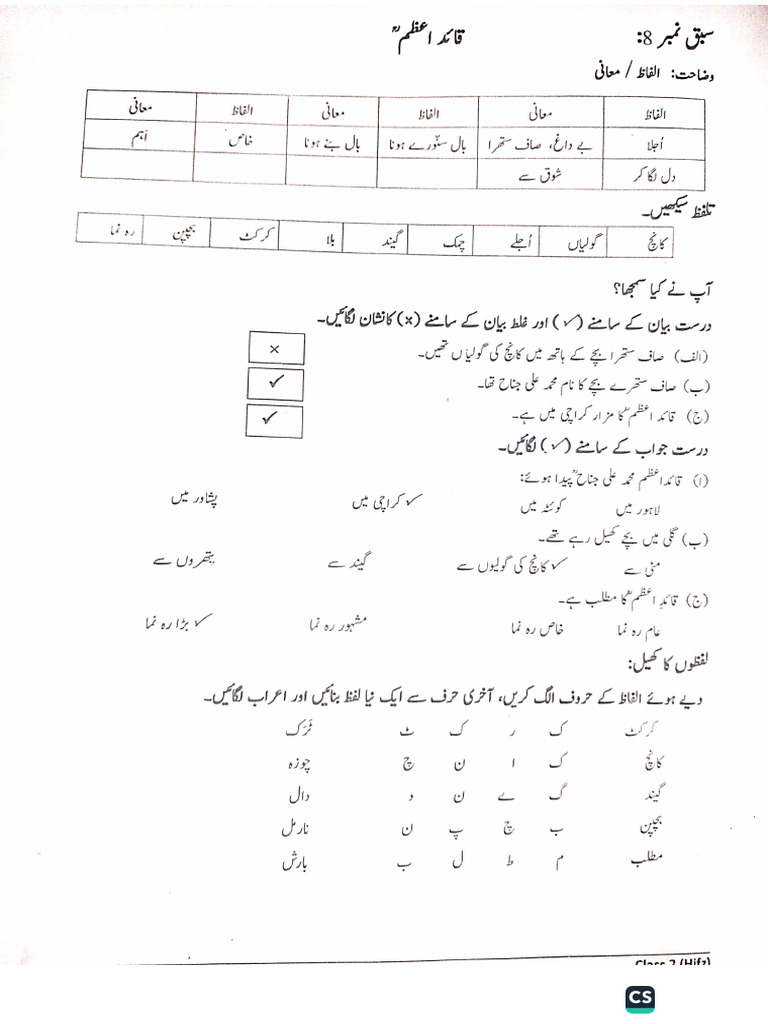 سبق نمبر 8: قائد اعظمؒ
وضاحت: الفاظ / معانی
الفاظ معانی الفاظ معانی الفاظ معانی
اُجلا بے داغ، صاف ستھرا بال سنّورے ہونا بال بنے ہونا خاص اَہم
دل لگا کر شوق سے
تلفظ سیکھیں۔
کانچ گولیاں اُجلے چمک گیند بلا کرکٹ بچپن رہ نما
آپ نے کیا سمجھا؟
درست بیان کے سامنے (✓) اور غلط بیان کے سامنے (×) کا نشان لگائیں۔
(الف) صاف ستھرا بچے کے ہاتھ میں کانچ کی گولیاں تھیں۔ ×
(ب) صاف ستھرے بچے کا نام محمد علی جناح تھا۔ ✓
(ج) قائد اعظمؒ کا مزار کراچی میں ہے۔ ✓
درست جواب کے سامنے (✓) لگائیں۔
(ا) قائداعظم محمد علی جناحؒ پیدا ہوئے:
لاہور میں کوئٹہ میں ✓ کراچی میں پشاور میں
(ب) گلی میں بچے کھیل رہے تھے۔
مٹی سے ✓ کانچ کی گولیوں سے گیند سے پتھروں سے
(ج) قائدِ اعظمؒ کا مطلب ہے۔
عام رہ نما خاص رہ نما مشہور رہ نما ✓ بڑا رہ نما
لفظوں کا کھیل:
دیے ہوئے الفاظ کے حروف الگ کریں، آخری حرف سے ایک نیا لفظ بنائیں اور اعراب لگائیں۔
کرکٹ ک ر ک ٹ ٹَرَک
کانچ ک ا ن چ چوزہ
گیند گ ے ن د دال
بچپن ب چ پ ن نارمل
مطلب م ط ل ب بارش
Class 2 (Hifz)
CS